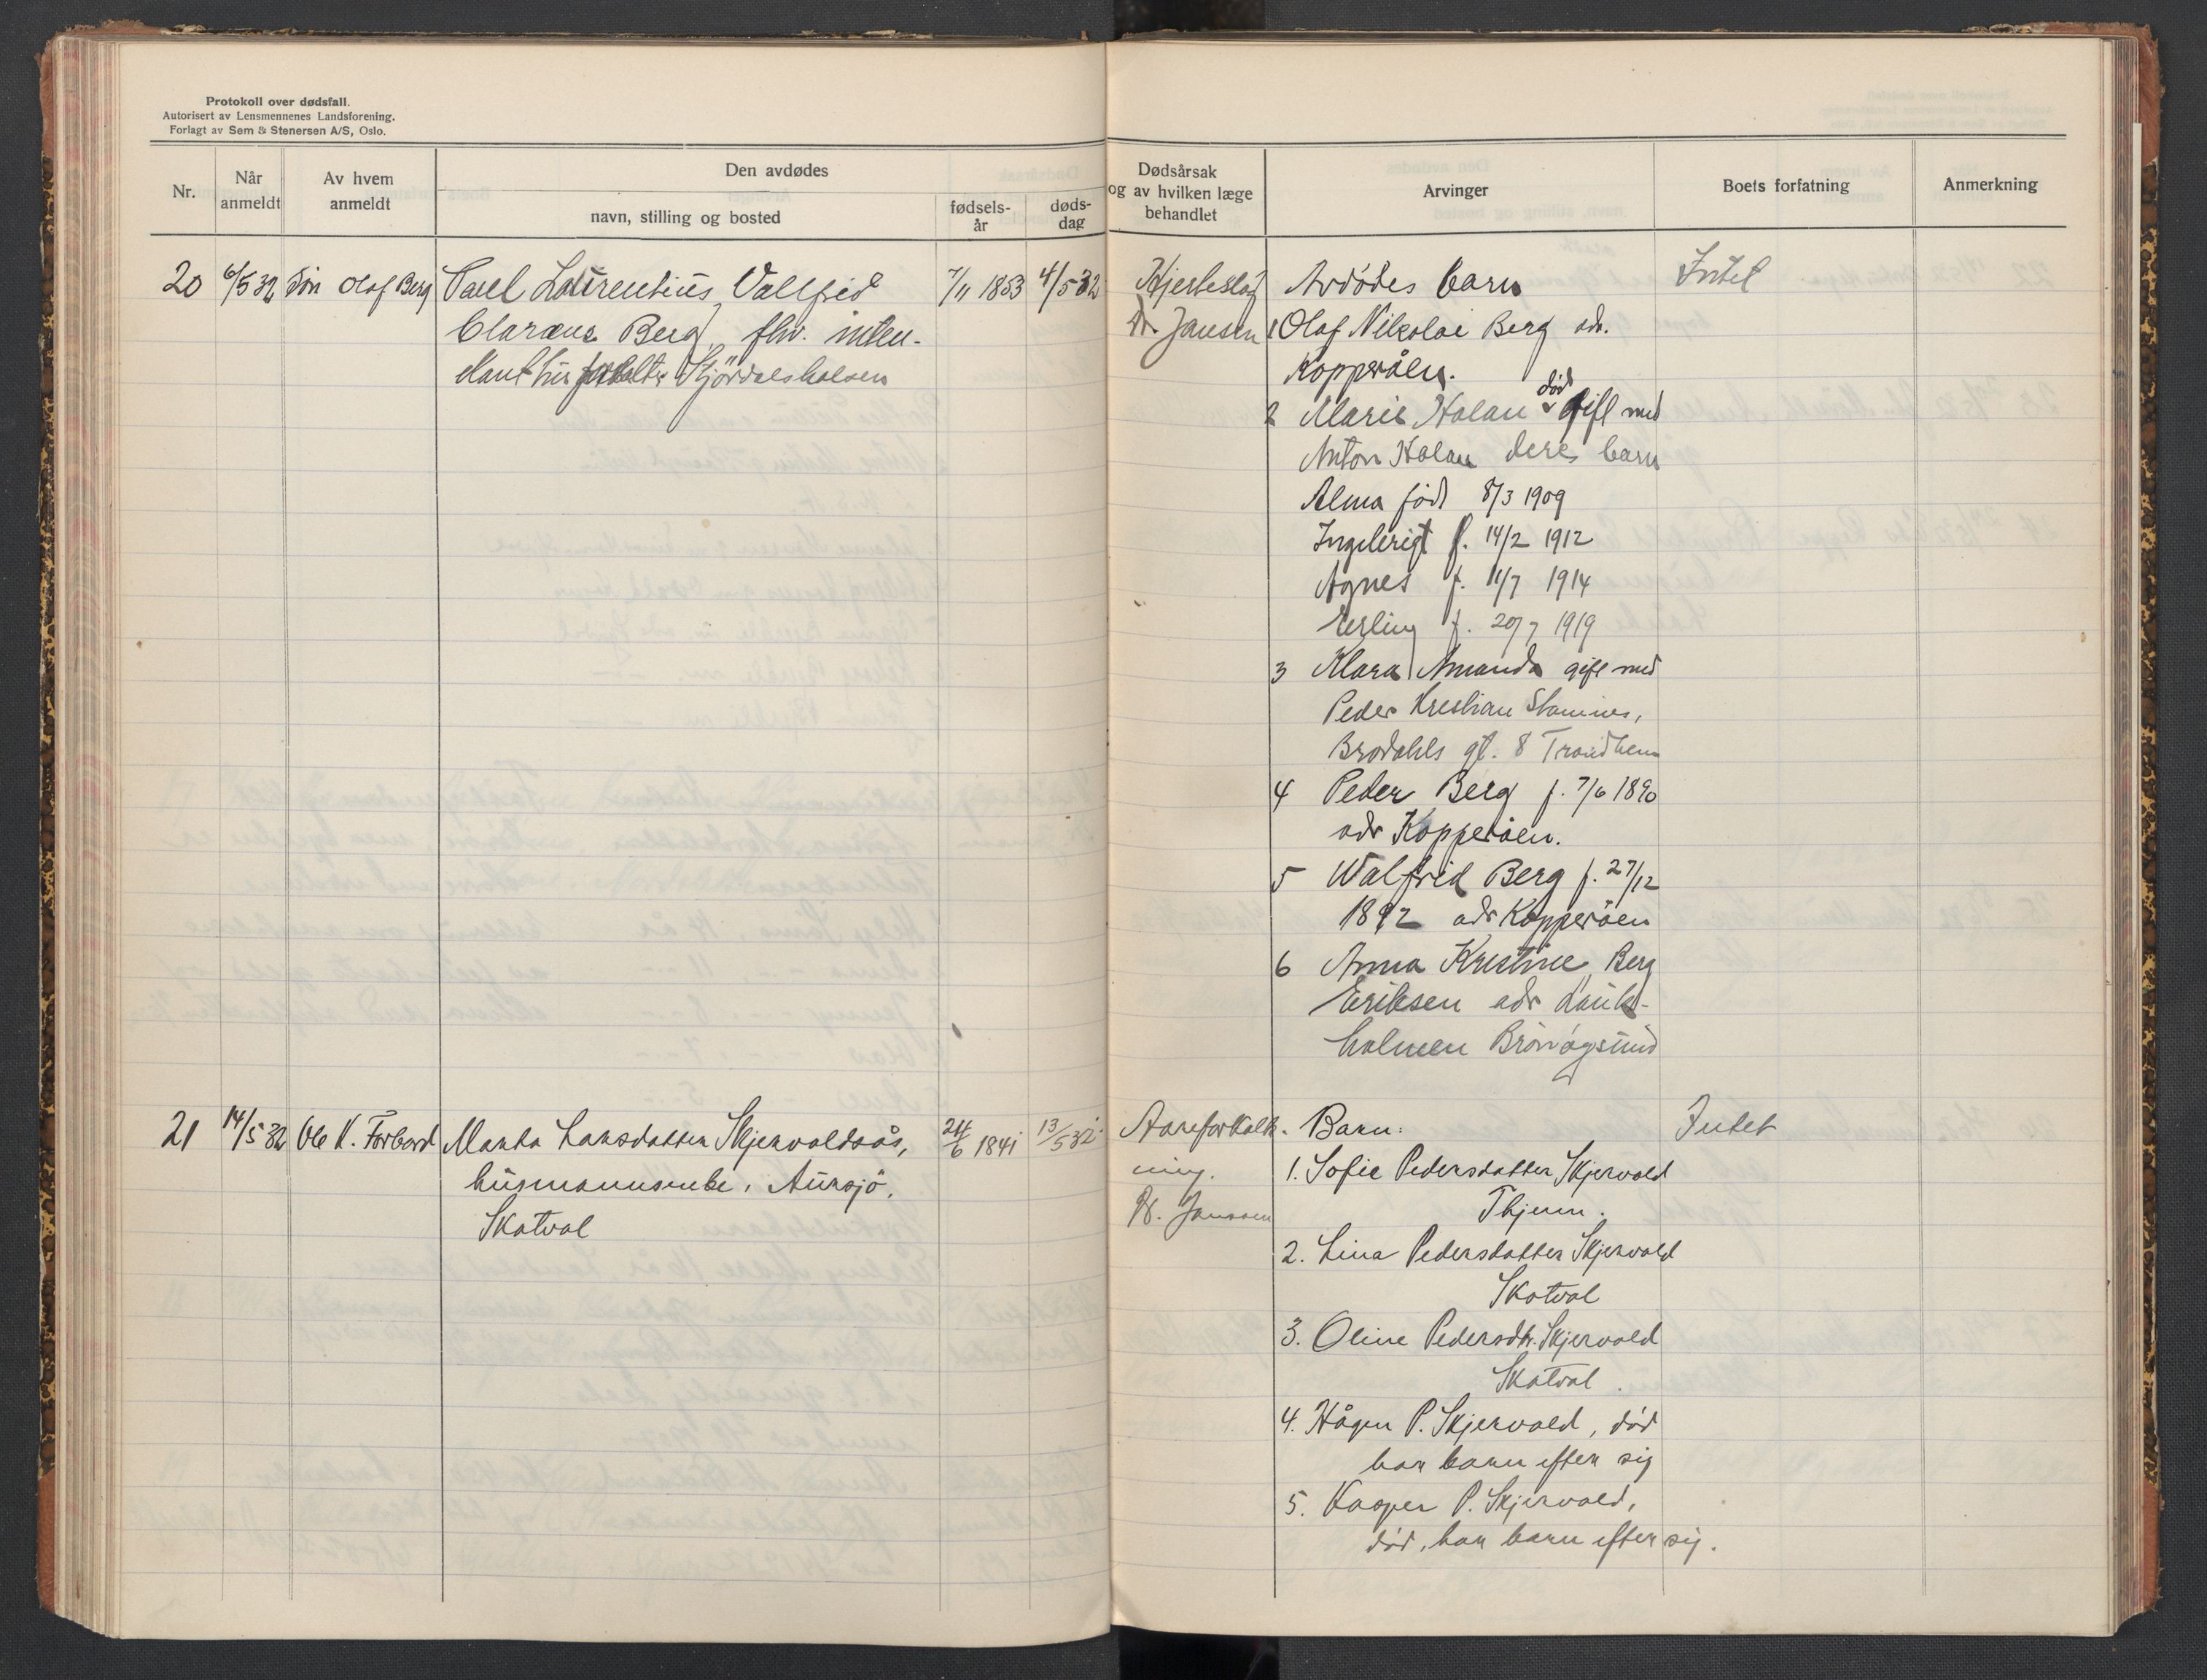 Protokoll over dødsfall.
Autorisert av Lensmennenes Landsforening.
Forlagt av Sem & Stenersen A/S, Oslo.
Nr.
Når anmeldt
Av hvem anmeldt
Den avdødes
navn, stilling og bosted
fødsels-år
døds-dag
Dødsårsak og av hvilken læge behandlet
Arvinger
Boets forfatning
Anmerkning
20 6/5 32 Søn Olaf Berg
Carel Laurentius Vallfrid
Clarens Berg, fhv. inten-
dant Stjördalshalsen
7/11 1853
4/5 32
Hjerteslag
Dr. Jansen
Avdödes barn
1 Olaf Nikolai Berg adr.
Kopperåen.
2 Marie Halan død gift med
Anton Halan deres barn
Alma född 8/3 1909
Ingebrigt f. 14/2 1912
Agnes f. 11/7 1914
Erling f. 20/7 1919
3 Klara Amanda gift med
Peder Kristian Stamnes,
Brodahls gt. 8 Trondhem
4 Peder Berg f. 7/6 1890
adr Kopperåen.
5 Walfrid Berg f. 27/12
1892 adr Kopperåen
6 Anna Kristine Berg
Eriksen adr
holmen Brönöysund
Intet
21 14/5 32 Ole K. Forbord
Marta Larsdatter Skjervoldsås,
husmannsenke, Aunsjö.
Skatval
24/6 1841
13/5 32
Aareforkalk-
ning.
Dr. Janssen
Barn:
1. Sofie Pedersdatter Skjervold
Thjem.
2. Lina Pedersdatter Skjervold
Skatval
3. Oline Pedersdtr. Skjervold
Skatval.
4. Hågen P. Skjervold, död
har barn efter sig
5. Kasper P. Skjervold,
död, har barn efter sig.
Intet